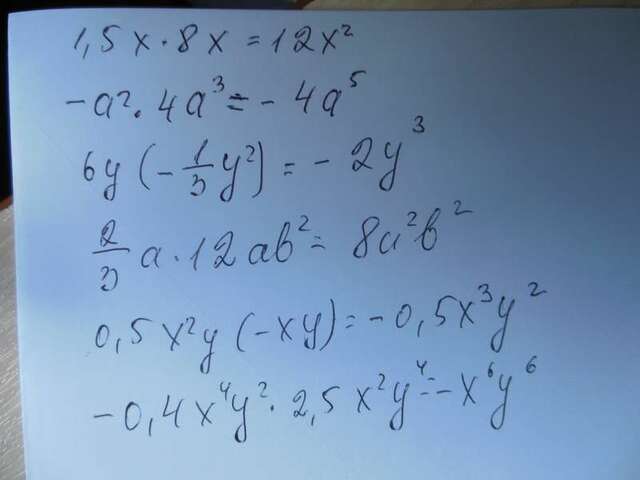 1,5x·8x=12x²
-a²·4a³=-4a⁵
6y(-1/3y²)=-2y³
2/3a·12ab²=8a²b²
0,5x²y(-xy)=-0,5x³y²
-0,4x⁴y²·2,5x²y⁴=-x⁶y⁶